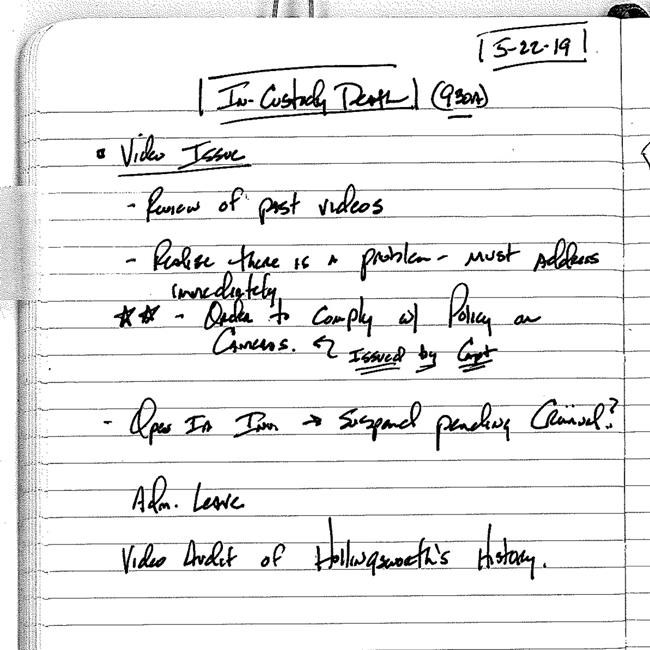 5-22-19
In-Custody Death (930A)
▪ Video Issue
- Review of past videos
- Realize there is a problem - must address
immediately
** - Order to Comply w/ Policy on
Cameras. Issued by Capt
- Open IA Inv → Suspend pending Criminal?
Adm. Leave
Video Audit of Hollingsworth's History.